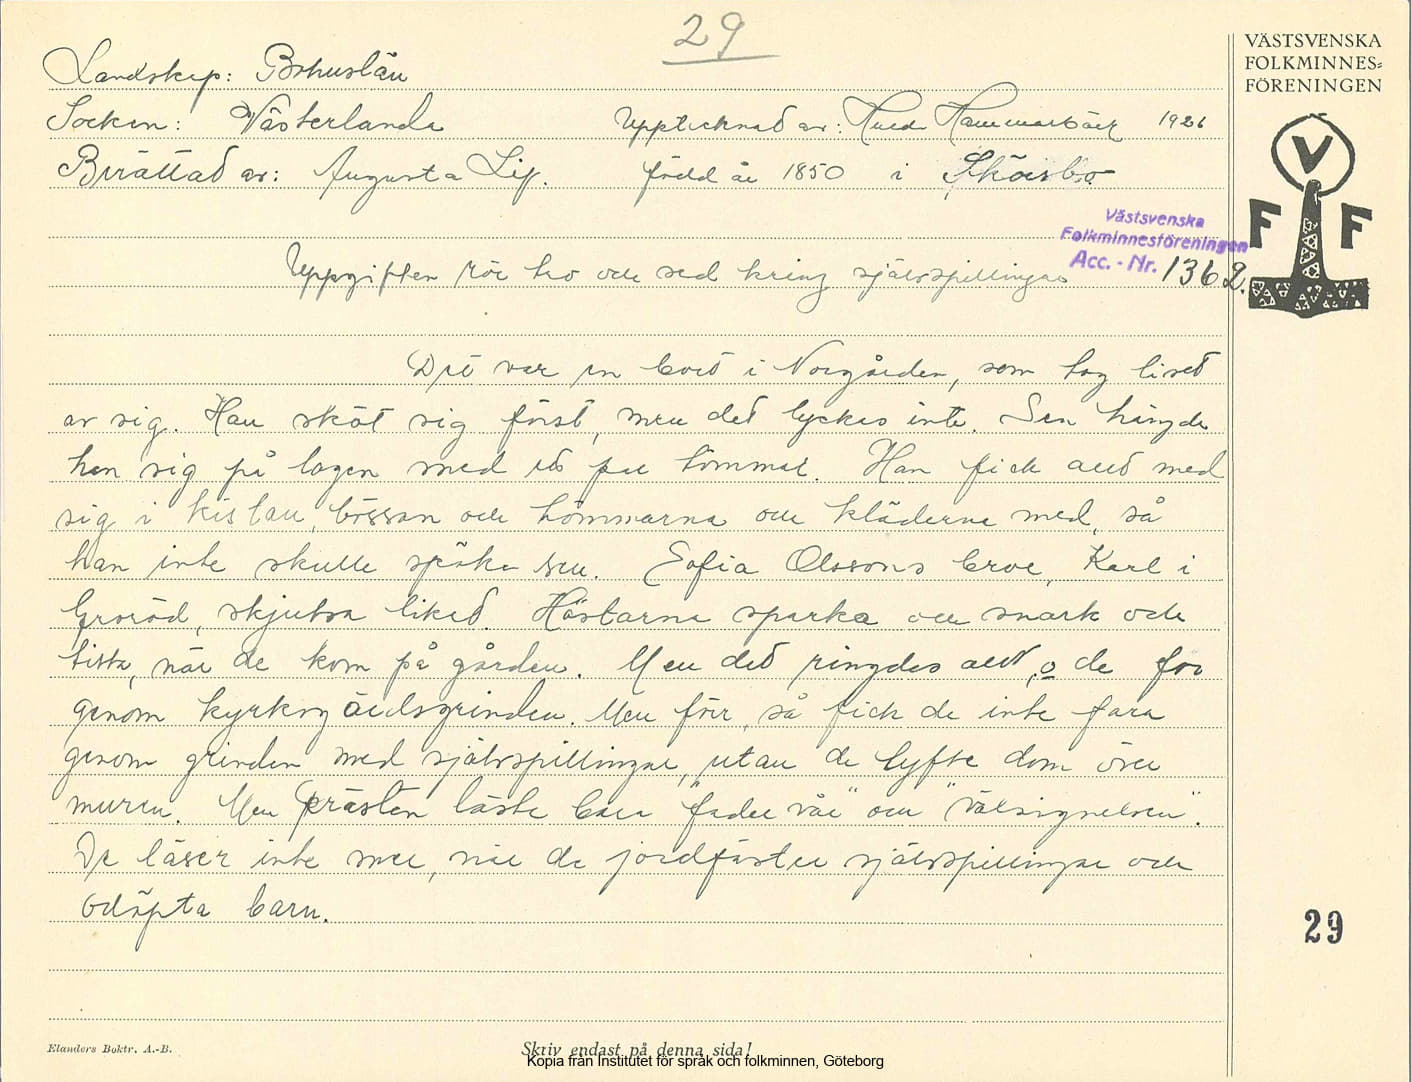 29
VÄSTSVENSKA
FOLKMINNES=
FÖRENINGEN
Landskap: Bohuslän
Socken: Västerlanda Upptecknad av: Hammarbäck 1926
Berättad av: Augusta Lif. född år 1850 i Sköisbo
V
F F
Västsvenska
Folkminnesföreningen
Acc. - Nr. 1362.
Uppgiften rör tro och sed kring självspillingar
Det var en bord i Norgården, som tog livet
av sig. Han sköt sig först, men det lyckes inte. Sen hängde
han sig på logen med ett par tömmar. Han fick allt med
sig i kistan, bössan och tömmarna och kläderna med, så
han inte skulle spöka sen. Sofia Olssons bror, Karl i
Groröd, skjutsa liket. Hästarna sparka och snark och
tista, när de kom på gården. Men det ringdes allt, o de for
genom kyrkogårdsgrinden. Men förr, så fick de inte fara
genom grinden med självspillingar, utan de lyfte dom över
muren. Men prästen läste bara "fader vår" och "välsignelsen".
De läser inte mer, när de jordfäster självspillingar och
odöpta barn.
29
Elanders Boktr. A.-B.
Skriv endast på denna sida!
Kopia från Institutet för språk och folkminnen, Göteborg